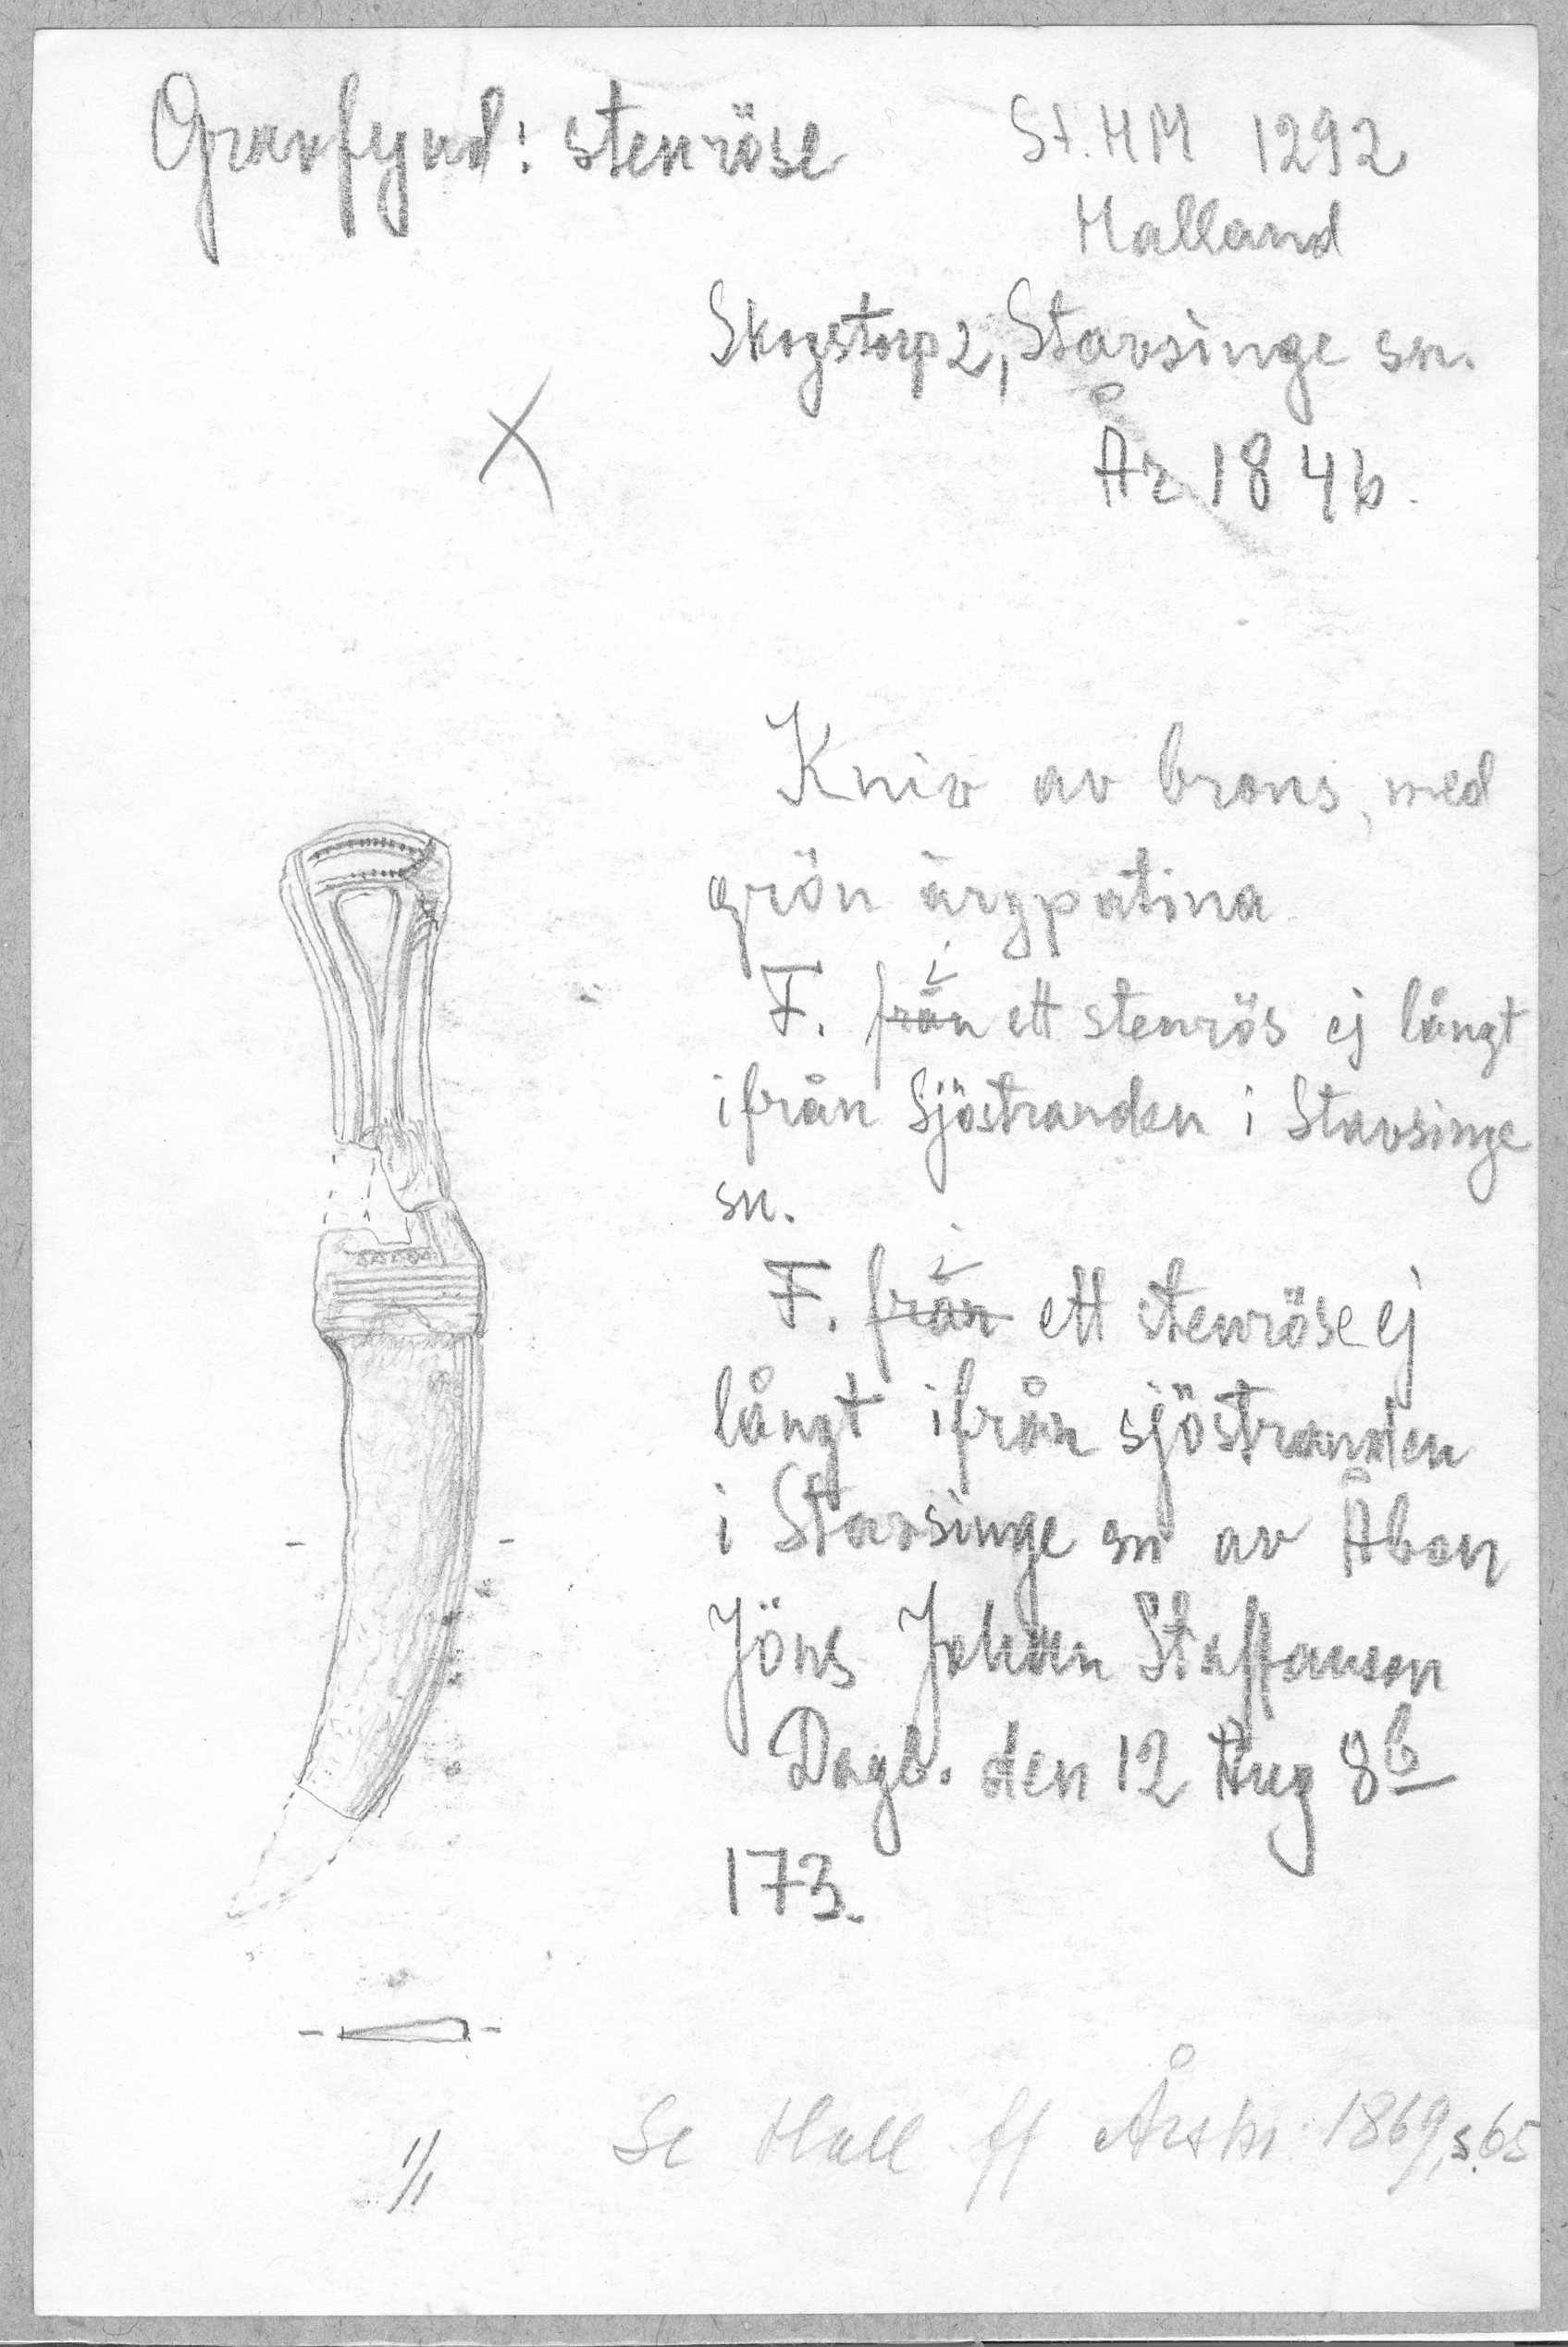 Gravfynd: stenröse
St. HM 1292
Halland
Skogstorp 2, Stavsinge sn.
År 1846.
X
Kniv av brons, med
grön ärgpatina
i
F. från ett stenrös ej långt
ifrån Sjöstranden i Stavsinge
sn.
i
F. från ett stenröse ej
långt ifrån sjöstranden
i Stavsinge sn av Åbon
Jöns Johan Staffanson
Dagb. den 12 Aug 86
173.
1/1
Se Hall ff Årsskr. 1869, s. 65